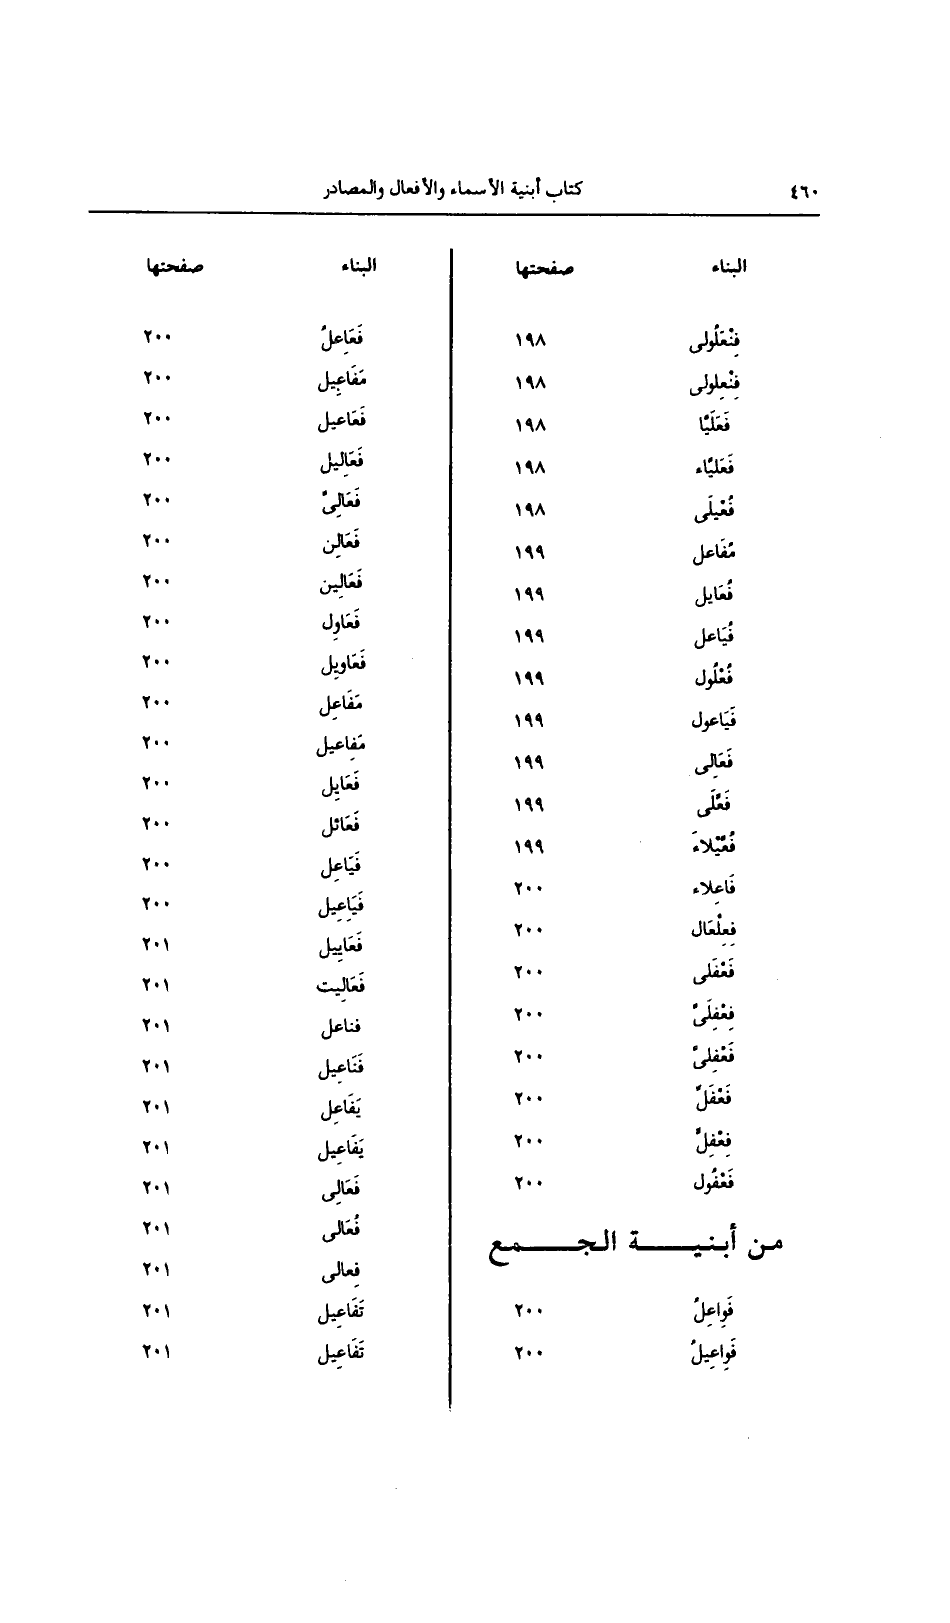 ٤٦٠ كتاب أبنية الأسماء والأفعال والمصادر
البناء صفحتها
فِنْعَلُولى ١٩٨
فِنْعِلولى ١٩٨
فَعَلَيَّا ١٩٨
فَعَلَيَّاء ١٩٨
فُعْيلَى ١٩٨
مُفَاعل ١٩٩
فُعَايل ١٩٩
فُيَاعل ١٩٩
فُعْلُول ١٩٩
فَيَاعول ١٩٩
فَعَالِى ١٩٩
فَعَّلَى ١٩٩
فُعَّيْلاءَ ١٩٩
فَاعِلاء ٢٠٠
فِعِلْعَال ٢٠٠
فَعْفَلى ٢٠٠
فِعْفِلَىّ ٢٠٠
فَعْفِلىّ ٢٠٠
فَعْفَلّ ٢٠٠
فِعْفِلّ ٢٠٠
فَعْفُول ٢٠٠
من أبنيـــة الجـــمع
فَواعِلُ ٢٠٠
فَواعِيلُ ٢٠٠
البناء صفحتها
فَعَاعِلُ ٢٠٠
مَفَاعِيل ٢٠٠
فَعَاعيل ٢٠٠
فَعَاليل ٢٠٠
فَعَالِىّ ٢٠٠
فَعَالِن ٢٠٠
فَعَالِين ٢٠٠
فَعَاوِل ٢٠٠
فَعَاوِيل ٢٠٠
مَفَاعِل ٢٠٠
مَفاعِيل ٢٠٠
فَعَايِل ٢٠٠
فَعَائل ٢٠٠
فَيَاعِل ٢٠٠
فَيَاعِيل ٢٠٠
فَعَاييل ٢٠١
فَعَالِيت ٢٠١
فناعل ٢٠١
فَنَاعِيل ٢٠١
يَفَاعِل ٢٠١
يَفَاعِيل ٢٠١
فَعَالِى ٢٠١
فُعَالى ٢٠١
فِعالى ٢٠١
تَفَاعِيل ٢٠١
تَفَاعِيل ٢٠١